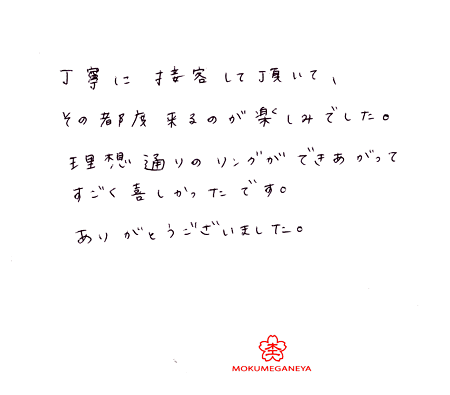 丁寧に接客して頂いて、
その都度来るのが楽しみでした。
理想通りのリングができあがって
すごく喜しかったです。
ありがとうございました。
杢
MOKUMEGANEYA